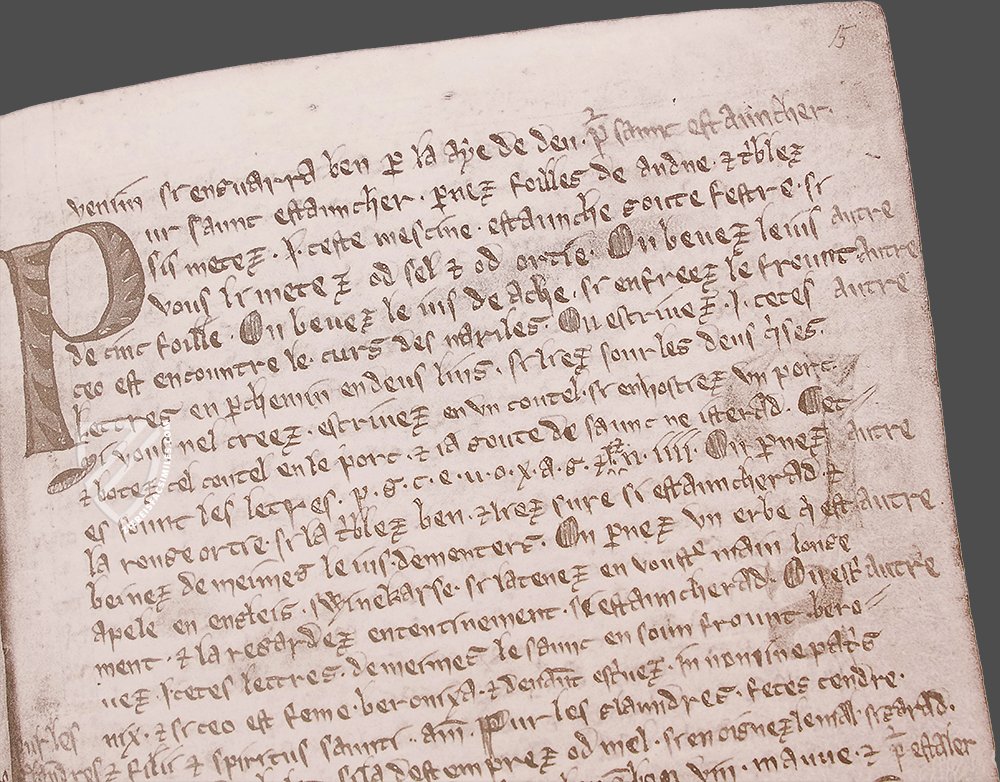 15
venim si enguarra ben p la aÿe de deu. pr sanc estauncher.
Pur sanc estauncher. pernez foilles de andne. & tblez
sis metez. I. ceste mescine. estaunche goute festre. si
vous li metez od sel & od ortie. Ou bevez le ius autre
de cinc foille. Ou bevez le ius de ache. si enfreez le frount autre
ceo est encountre le. curs des nariles. Ou escrivez. I. cetes autre
lettres en pchemin en deus lius. si liez sour les deus qises.
si vous nel creez. escrivez en un coutel. si en hostiez un porc.
& botez cel coutel en le porc. & ia goute de sanc ne isterad. Cet
es sount les letres. p. g. c. e. v. o. x. a. g. iiii. Ou pernez autre
la rouge ortie si la tblez ben. & liez sure si estauncherad. &
bevez de meimes le ius. dementers. Ou pernez un erbe q est autre
apele en engleis. swinekarse. si la tenez en voustre main longe
ment. & la regardez ententinement. si estauncherad. Ou esc autre
vez. I. cetes lettres. de meimes le sanc en soun frount bero
nix. & si ceo est feme. beronixa. & devant escvez. In nomine patris
& filii & spiritus sancti. am. Pur les glaundres. fetes cendre.
si la destemprez od mel. si en oignez le mal. si garad.
un. mauve. & pr estaler